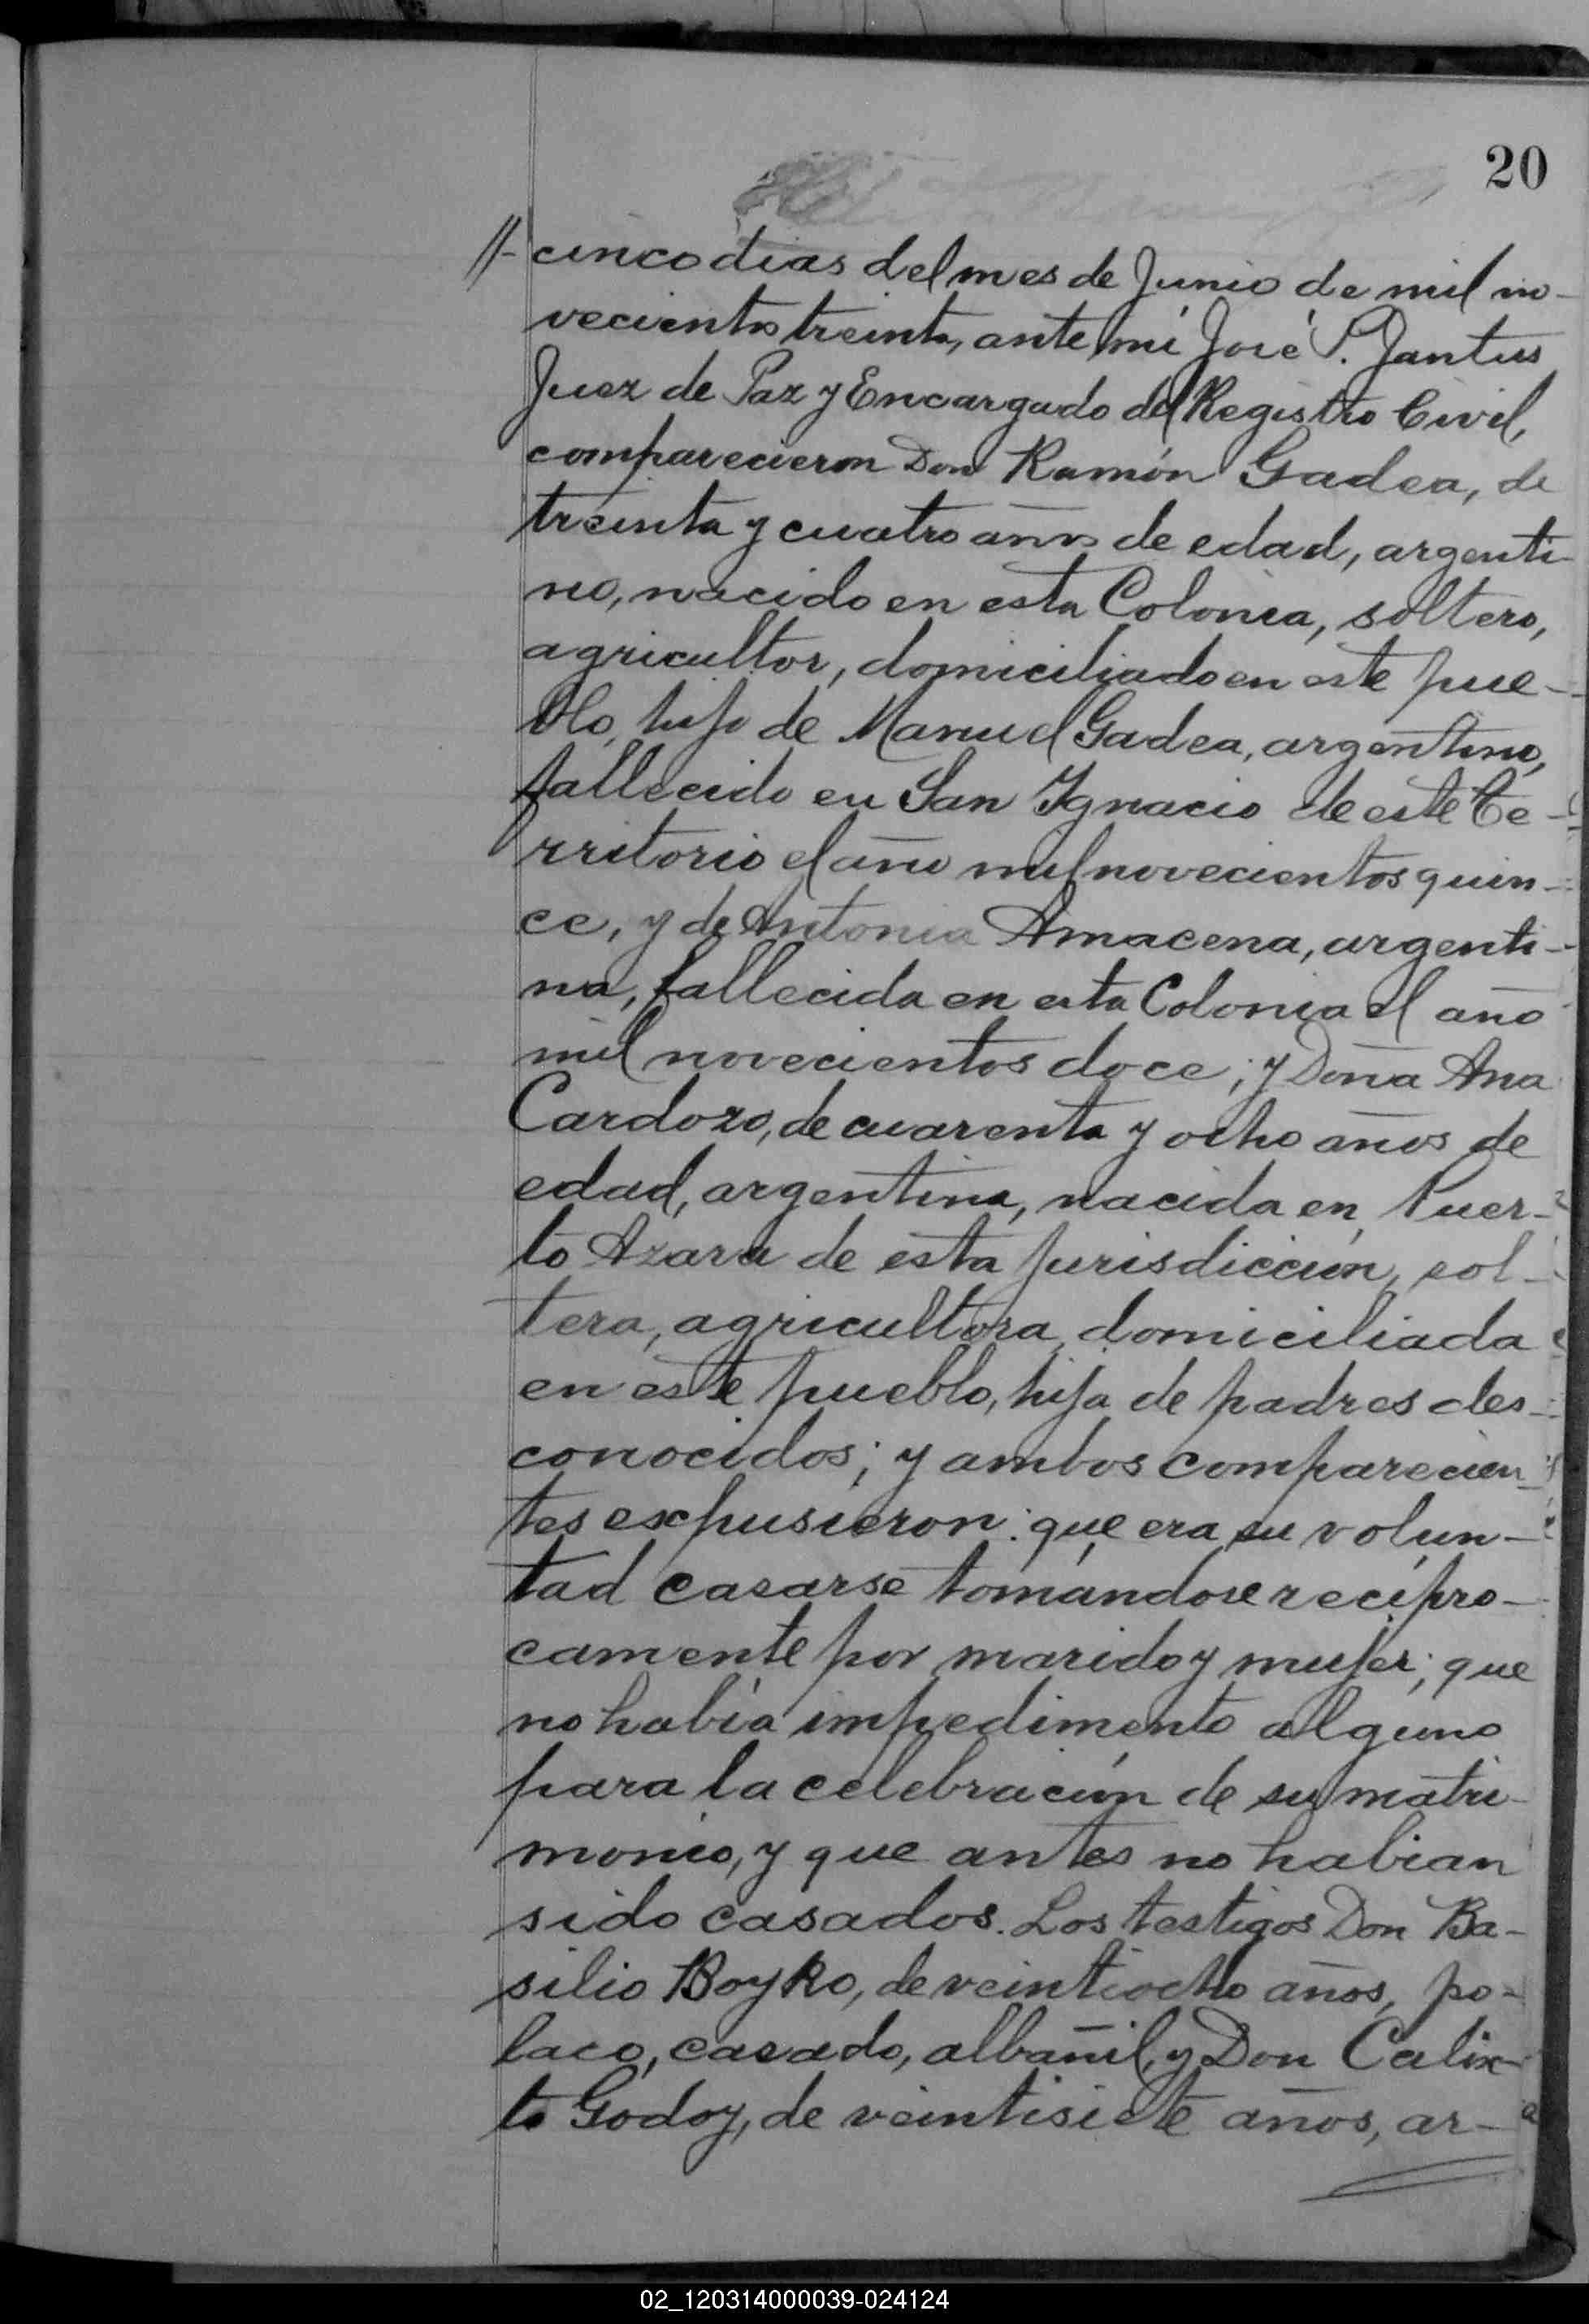 20
//- cinco dias del mes de Junio de mil no-
vecientos treinta, ante mí José P. Jantus
Juez de Paz y Encargado del Registro Civil,
comparecieron Don Ramón Gadea, de
treinta y cuatro años de edad, argenti-
no, nacido en esta Colonia, soltero,
agricultor, domiciliado en este pue-
blo, hijo de Manuel Gadea, argentino,
fallecido en San Ignacio de este Te-
rritorio el año mil novecientos quin-
ce, y de Antonia Amacena, argenti-
na, fallecida en esta Colonia el año
mil novecientos doce; y Doña Ana
Cardozo, de cuarenta y ocho años de
edad, argentina, nacida en Puer-
to Azara de esta jurisdicción, sol-
tera, agricultora, domiciliada
en este pueblo, hija de padres des-
conocidos; y ambos comparecien-
tes expusieron: que era su volun-
tad casarse tomándose recípro-
camente por marido y mujer; que
no había impedimento alguno
para la celebración de su matri-
monio, y que antes no habian
sido casados. Los testigos Don Ba-
silio Boyko, de veintiocho años, po-
laco, casado, albañil, y Don Calix-
to Godoy, de veintisiete años, ar-
02_120314000039-024124